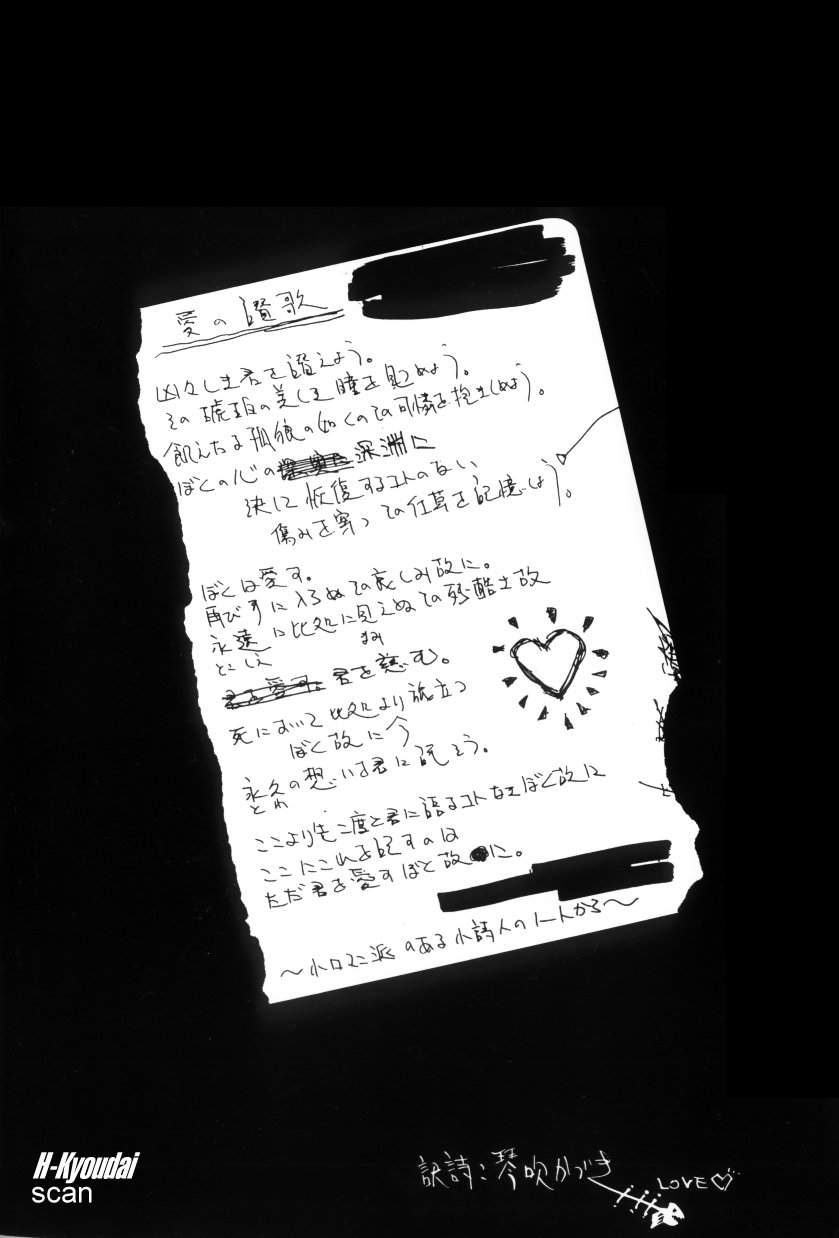 愛の讃歌
凶々しき君を讃えよう。
その琥珀の美しき瞳を見つめよう。
飢えたる孤狼の如くのその可憐を抱きしめよう。
ぼくの心の深淵に
決して恢復するコトのない
傷みを穿つその仕草を記憶しよう。
ぼくは愛す。
再び手に入らぬその哀しみ故に。
永遠に此処に見えぬその残酷さ故
とこしえ
まみ
君を愛す。君を慈む。
死において此処より旅立つ
ぼく故に今
永久の想いを君に託そう。
とわ
ここよりも二度と君に語るコトなきぼく故に
ここにこれを記すのは
ただ君を愛すぼく故に。
～小ロマン派のある小詩人のノートから～
訳詩:琴吹かづき
LOVE♡
H-Kyoudai
scan